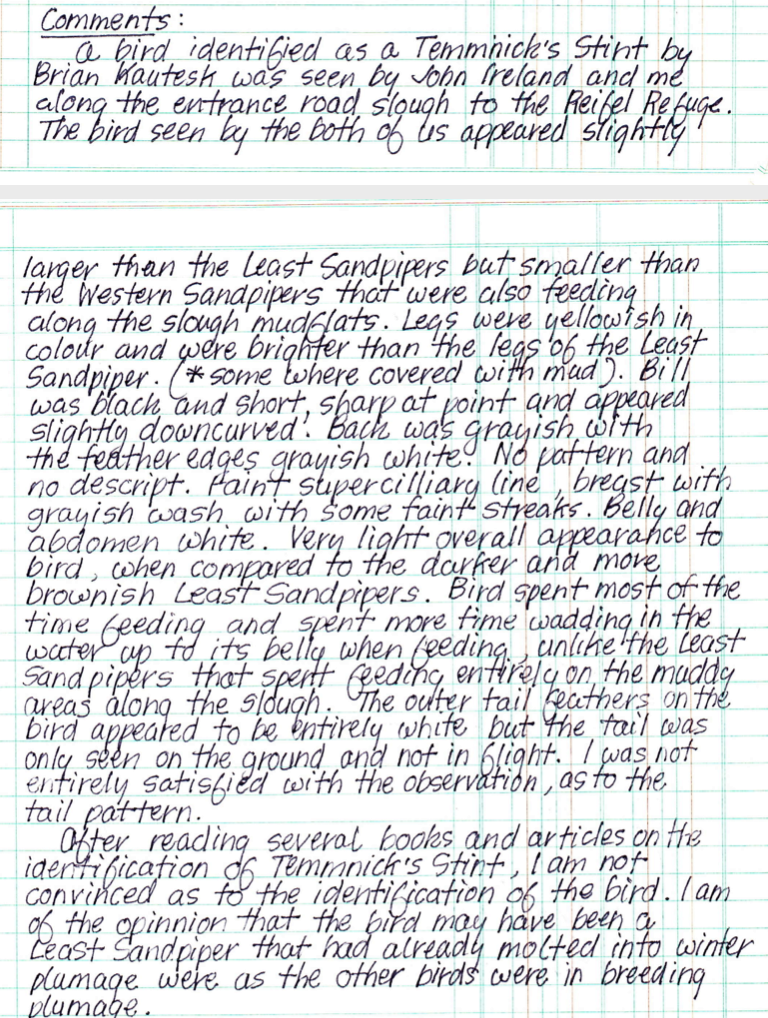 Comments:
A bird identified as a Temminick's Stint by
Brian Kautesk was seen by John Ireland and me
along the entrance road slough to the Reifel Refuge.
The bird seen by the both of us appeared slightly
larger than the Least Sandpipers but smaller than
the Western Sandpipers that were also feeding
along the slough mudflats. Legs were yellowish in
colour and were brighter than the legs of the Least
Sandpiper. (*some where covered with mud). Bill
was black and short, sharp at point and appeared
slightly downcurved. Back was grayish with
the feather edges grayish white. No pattern and
no descript. Faint supercilliary line, breast with
grayish wash with some faint streaks. Belly and
abdomen white. Very light overall appearance to
bird, when compared to the darker and more
brownish Least Sandpipers. Bird spent most of the
time feeding and spent more time wadding in the
water up to its belly when feeding, unlike the Least
Sandpipers that spent feeding entirely on the muddy
areas along the slough. The outer tail feathers on the
bird appeared to be entirely white but the tail was
only seen on the ground and not in flight. I was not
entirely satisfied with the observation, as to the
tail pattern.
After reading several books and articles on the
identification of Temmnick's Stint, I am not
convinced as to the identification of the bird. I am
of the opinnion that the bird may have been a
Least Sandpiper that had already molted into winter
plumage were as the other birds were in breeding
plumage.